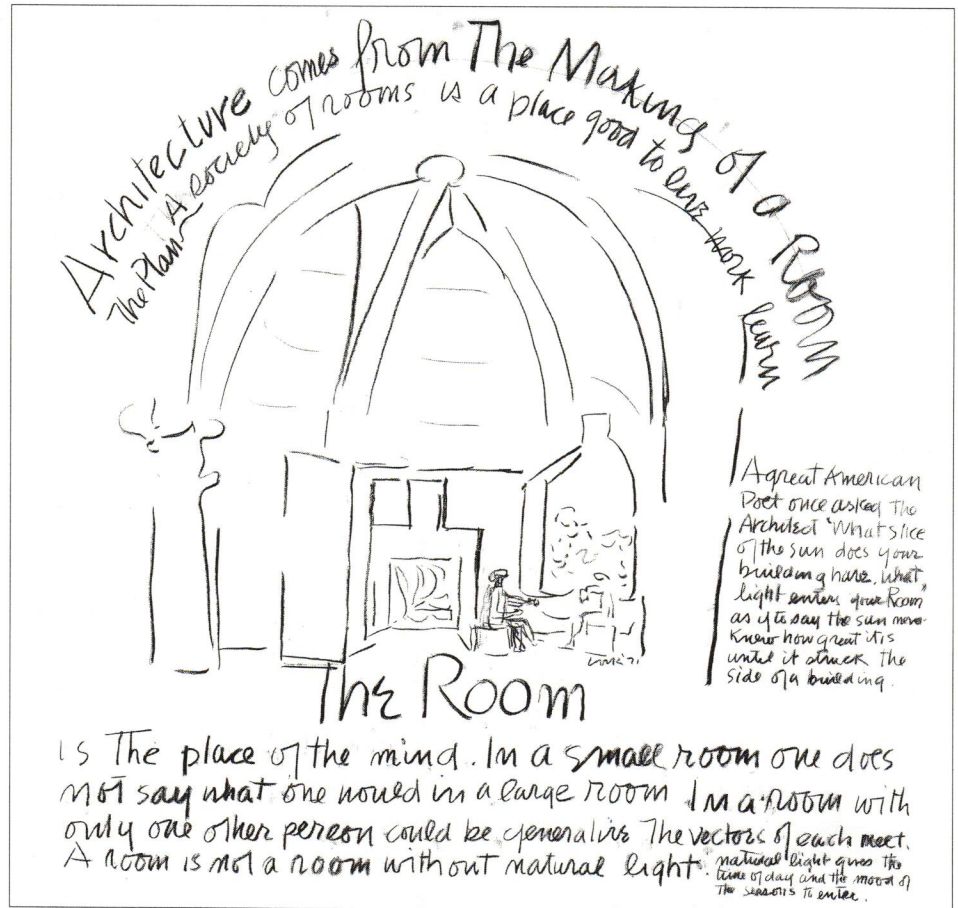 Architecture comes from The Making of a Room
The Plan A society of rooms is a place good to live work learn
A great American
Poet once asked The
Architect 'What slice
of the sun does your
building have, what
light enters your Room"
as if to say the sun never
knew how great it is
until it struck the
side of a building.
The Room
is The place of the mind. In a small room one does
not say what one would in a large room In a room with
only one other person could be generative The vectors of each meet.
A room is not a room without natural light.
natural light gives the
time of day and the mood of
The seasons to enter.